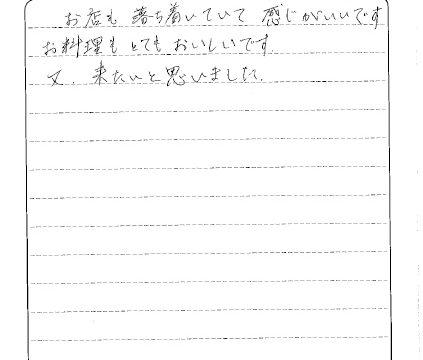 お店も 落ち着いていて 感じがいいです
お料理も とても おいしいです
又、来たいと思いました。